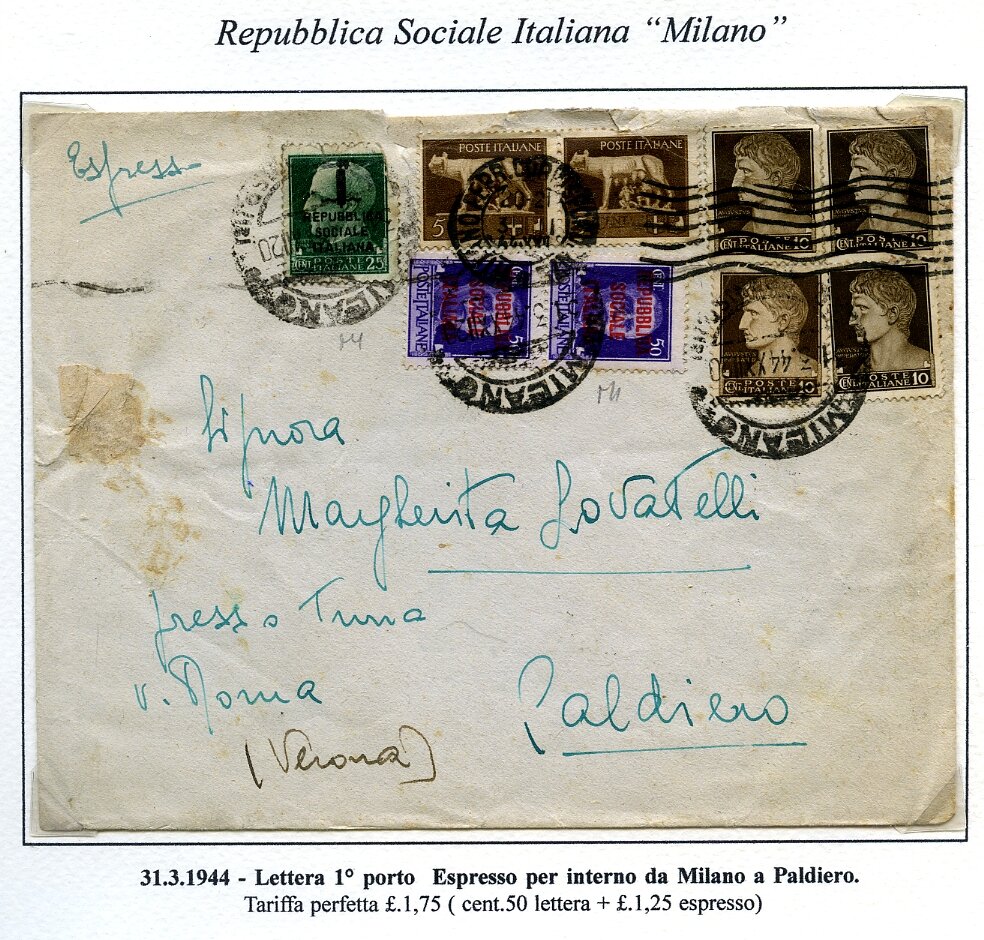 Repubblica Sociale Italiana “Milano”
Espresso
REPUBBLICA
SOCIALE
ITALIANA
CENT. POSTE ITALIANE 25
MILANO
POSTE ITALIANE
5
POSTE ITALIANE
CENT. POSTE ITALIANE 10
CENT. POSTE ITALIANE 10
CENT. POSTE ITALIANE 10
CENT. POSTE ITALIANE 10
POSTE ITALIANE
REPUBBLICA
SOCIALE
ITALIANA
50
POSTE ITALIANE
REPUBBLICA
SOCIALE
ITALIANA
50
MILANO
MILANO
Signora
Margherita Lovatelli
presso Turra
v. Roma
Caldiero
(Verona)
31.3.1944 - Lettera 1° porto Espresso per interno da Milano a Paldiero.
Tariffa perfetta £.1,75 ( cent.50 lettera + £.1,25 espresso)